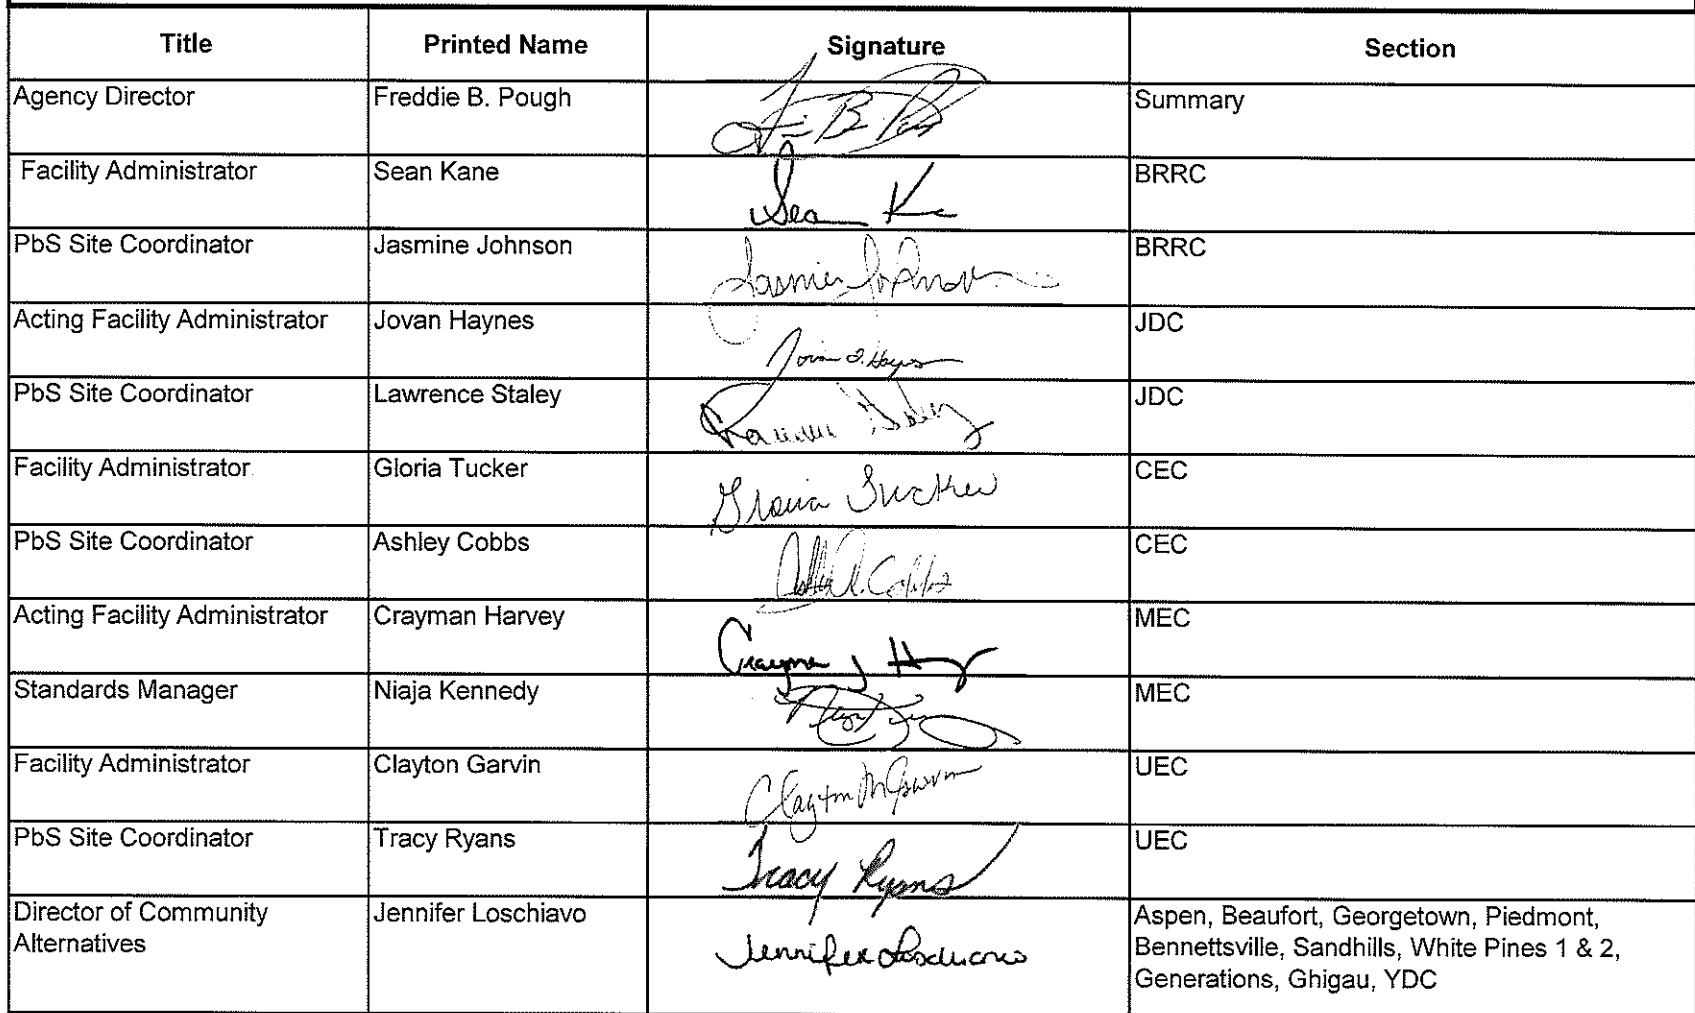 Title Printed Name Signature Section
Agency Director Freddie B. Pough Summary
Facility Administrator Sean Kane Sean K BRRC
PbS Site Coordinator Jasmine Johnson Jasmine Johnson BRRC
Acting Facility Administrator Jovan Haynes JDC
PbS Site Coordinator Lawrence Staley JDC
Facility Administrator Gloria Tucker Gloria Tucker CEC
PbS Site Coordinator Ashley Cobbs CEC
Acting Facility Administrator Crayman Harvey MEC
Standards Manager Niaja Kennedy MEC
Facility Administrator Clayton Garvin Clayton M Garvin UEC
PbS Site Coordinator Tracy Ryans Tracy Ryans UEC
Director of Community Jennifer Loschiavo Aspen, Beaufort, Georgetown, Piedmont,
Alternatives Jennifer Loschiavo Bennettsville, Sandhills, White Pines 1 & 2,
Generations, Ghigau, YDC